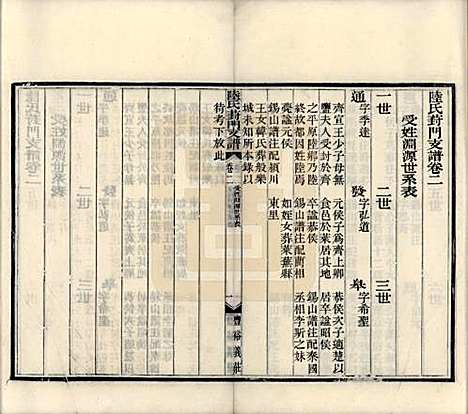 陸氏葑門支譜卷二
受姓淵源世系表
一世
二世
三世
通 字季逵
發 字弘道
皋 字希聖
齊宣王少子母無
鹽夫人受封於齊
之平原陸鄉乃陸
氏之始因姓陸焉
薨諡元侯
錫山譜注配頴川
王女韓氏葬般樂
城未知所本錄以
待考下放此
元侯子爲齊上卿
食邑於萊居其地
卒諡恭侯
錫山譜注配藺相
如姪女葬萊蕪縣
東里
恭侯次子適楚以
居卒諡昭侯
錫山譜注配秦國
丞相李斯之妹
陸氏葑門支譜
卷二
受姓淵源世系表
一
豐裕義莊